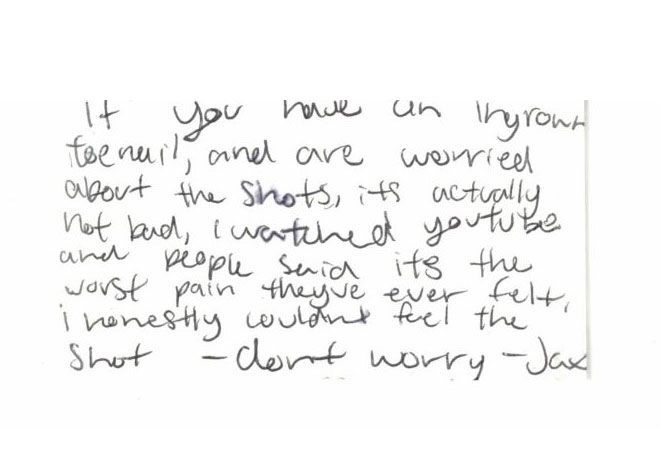 If you have an Ingrown
toenail, and are worried
about the shots, its actually
not bad, i watched youtube
and people said its the
worst pain theyve ever felt,
i honestly couldnt feel the
shot - dont worry - Jax